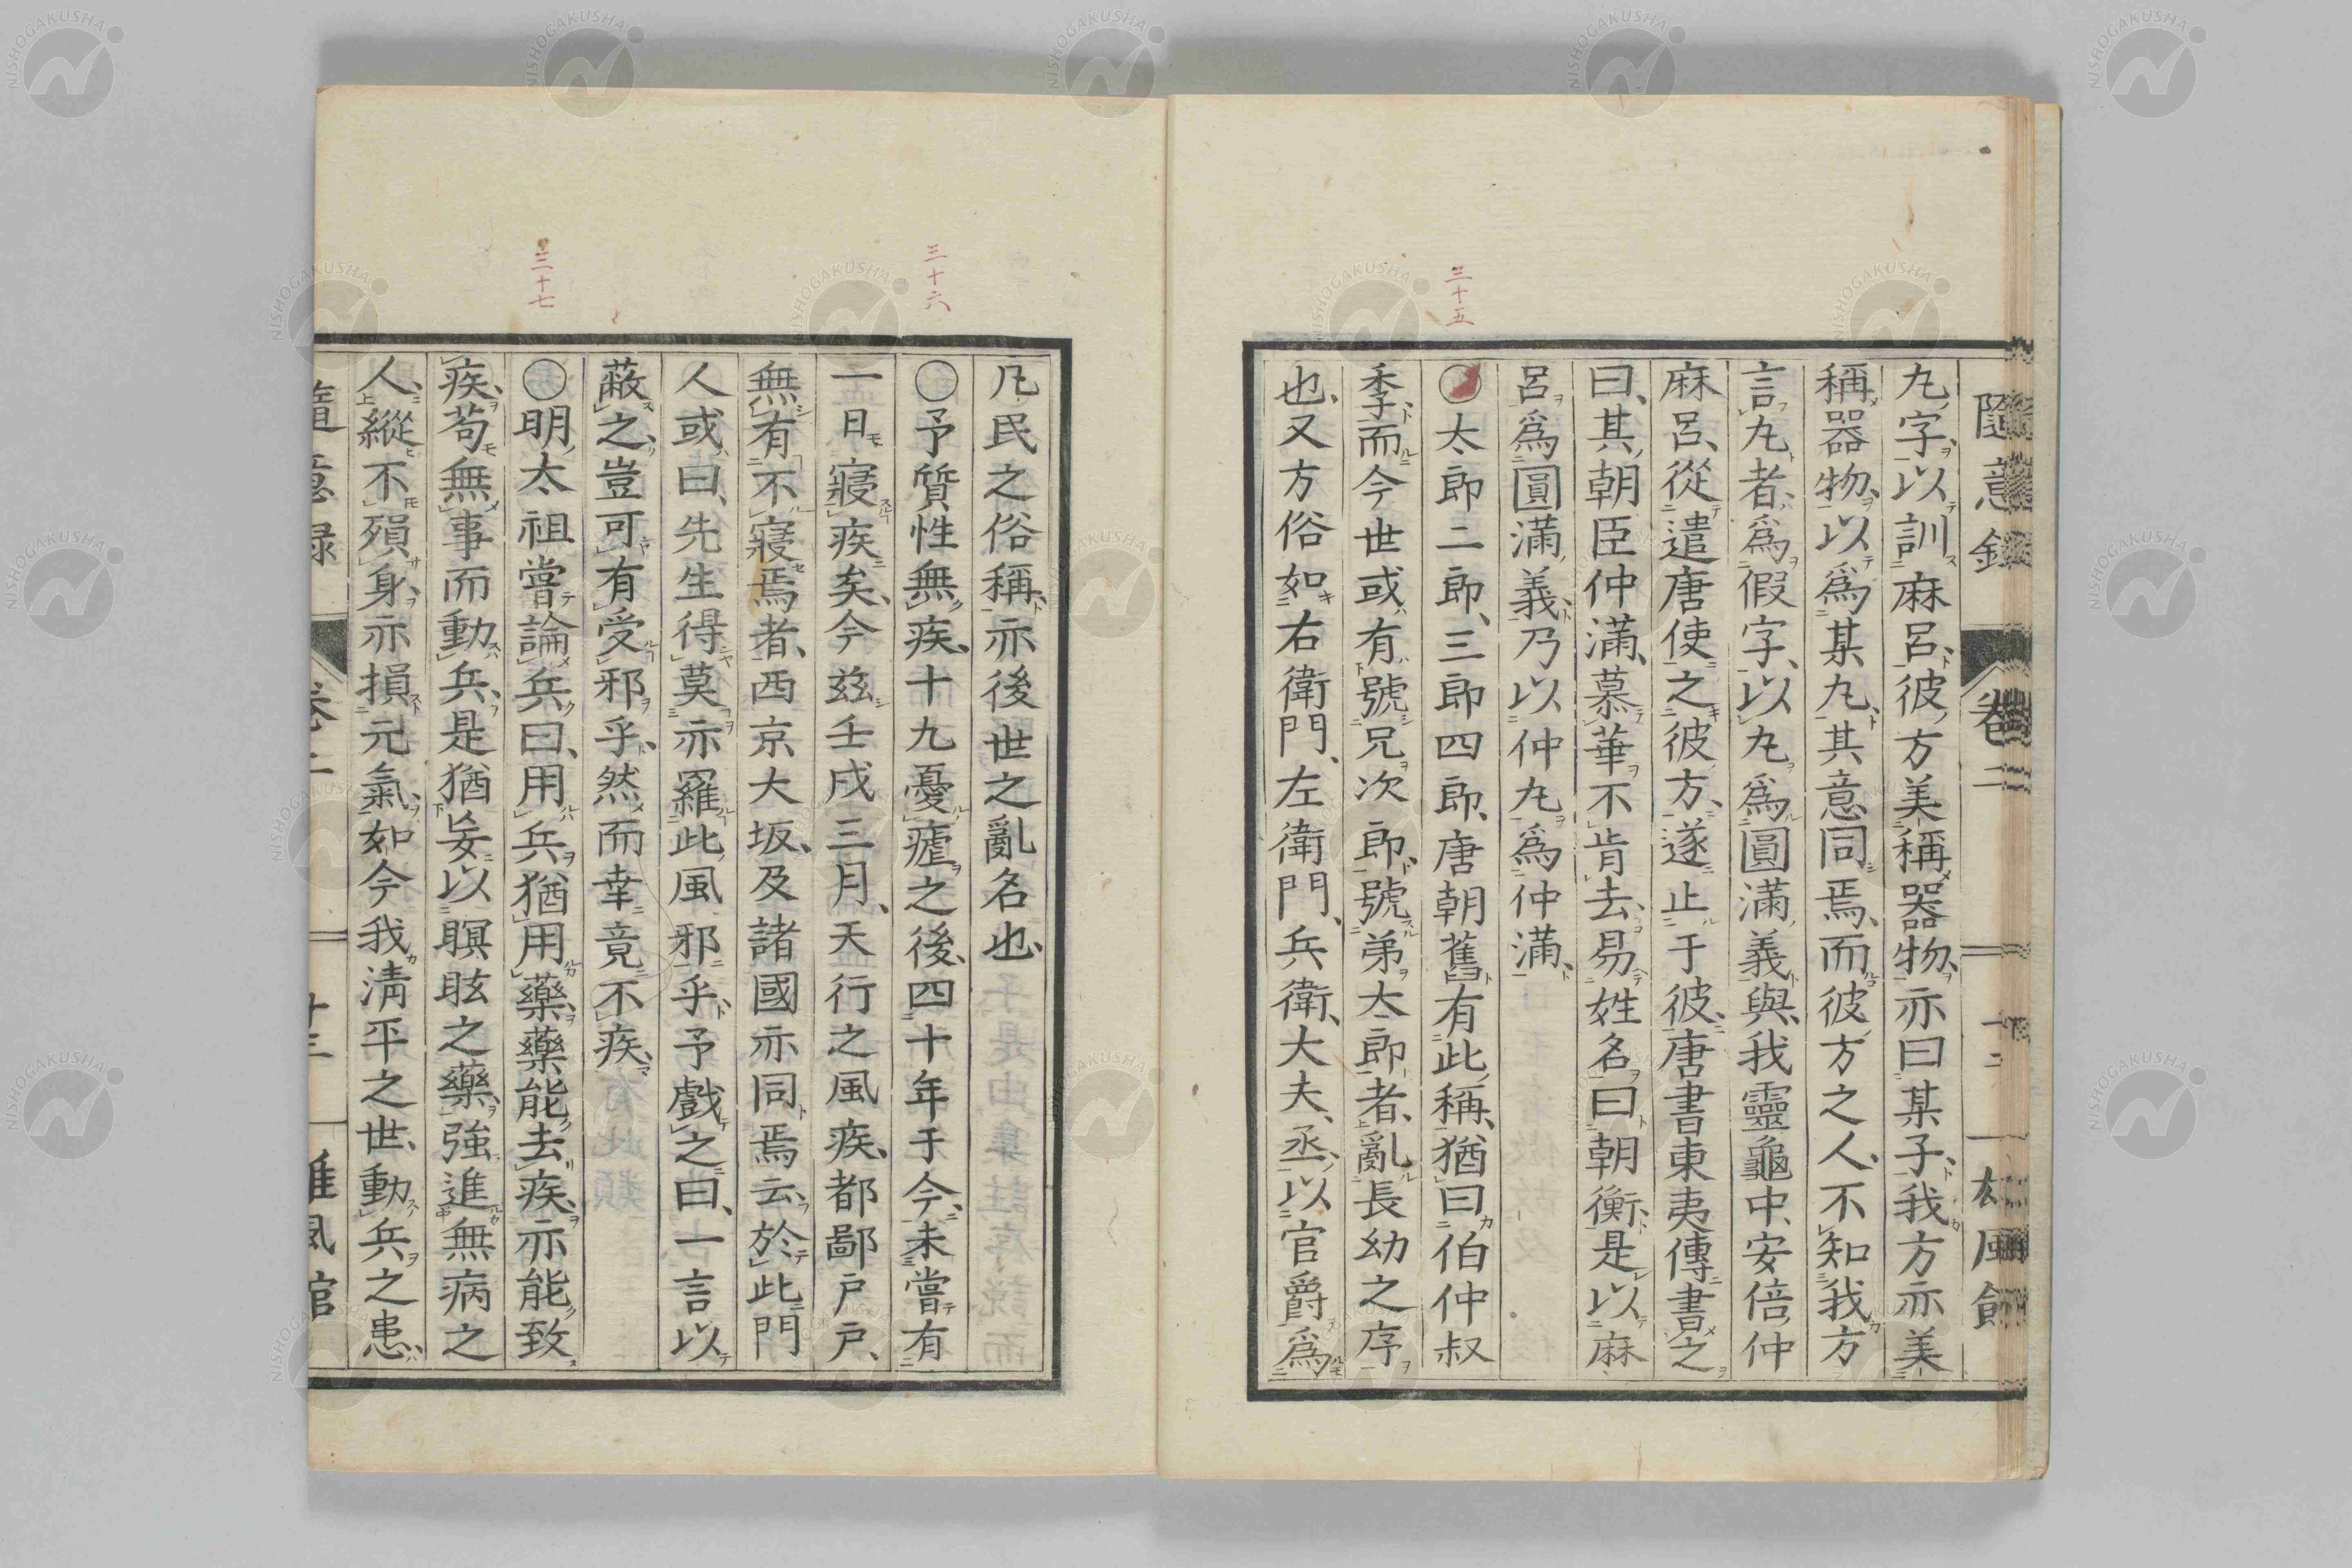 隨意錄 卷二 十二 雄風館
九字以訓麻呂彼方美稱器物亦曰某子我方亦美
稱器物以爲某九其意同焉而彼方之人不知我方
言九者爲假字以九爲圓滿義與我靈龜中安倍仲
麻呂從遣唐使之彼方遂止于彼唐書東夷傳書之
曰其朝臣仲滿慕華不肯去易姓名曰朝衡是以麻
呂爲圓滿義乃以仲九爲仲滿
三十五
〇太郎二郎三郎四郎唐朝舊有此稱猶曰伯仲叔
季而今世或有號兄次郎號弟太郎者亂長幼之序
也又方俗如右衛門左衛門兵衛大夫丞以官爵爲
凡民之俗稱亦後世之亂名也
三十六
〇予質性無疾十九憂瘧之後四十年于今未嘗有
一日寢疾矣今玆壬戌三月天行之風疾都鄙戶戶
無有不寢焉者西京大坂及諸國亦同焉云於此門
人或曰先生得莫亦羅此風邪乎予戲之曰一言以
蔽之豈可有受邪乎然而幸竟不疾
三十七
〇明太祖嘗論兵曰用兵猶用藥藥能去疾亦能致
疾苟無事而動兵是猶妄以瞑眩之藥強進無病之
人縱不殞身亦損元氣如今我淸平之世動兵之患
隨意錄 卷二 十三 雄風館
NISHOGAKUSHA